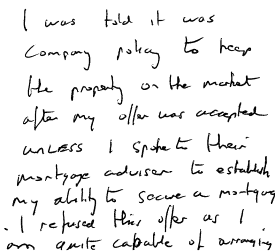 I was told it was
Company policy to keep
the property on the market
after my offer was accepted
unless I spoke to their
mortgage adviser to establish
my ability to secure a mortgage
. I refused this offer as I
am quite capable of arranging